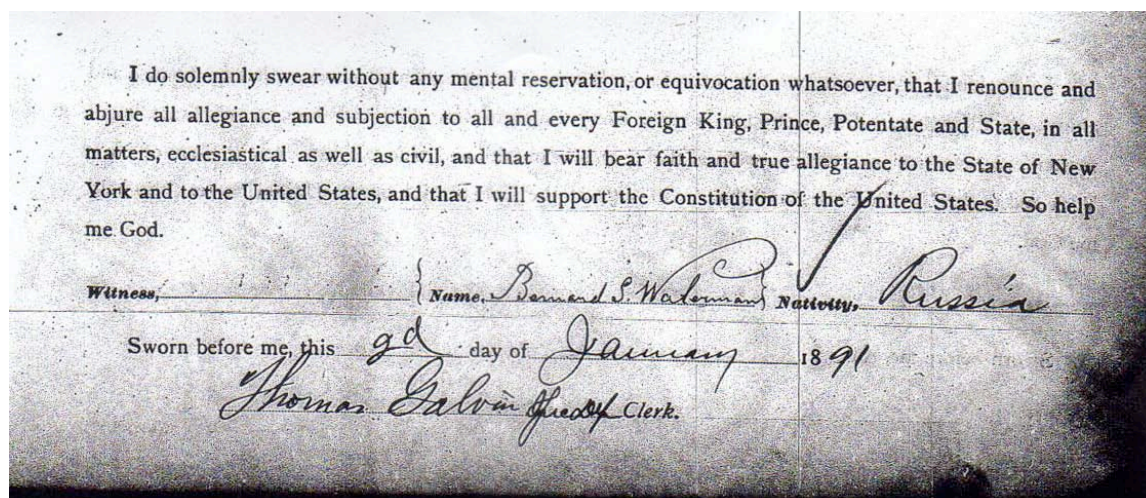 I do solemnly swear without any mental reservation, or equivocation whatsoever, that I renounce and
abjure all allegiance and subjection to all and every Foreign King, Prince, Potentate and State, in all
matters, ecclesiastical as well as civil, and that I will bear faith and true allegiance to the State of New
York and to the United States, and that I will support the Constitution of the United States. So help
me God.
Witness, Name, Bernard S. Waterman Nativity, Russia
Sworn before me, this 9d day of January 1891
Thomas Galvin Clerk.